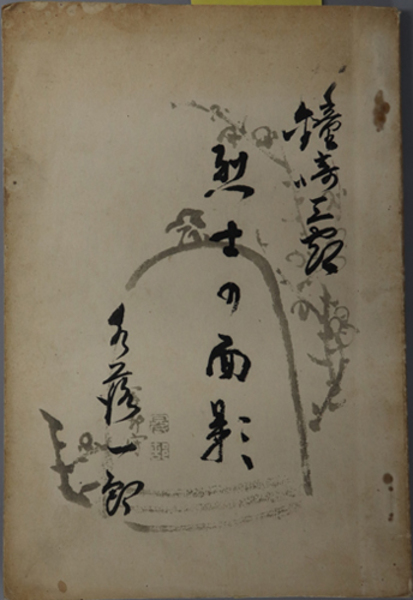 鐘崎三郎
烈士の面影
名落一郎